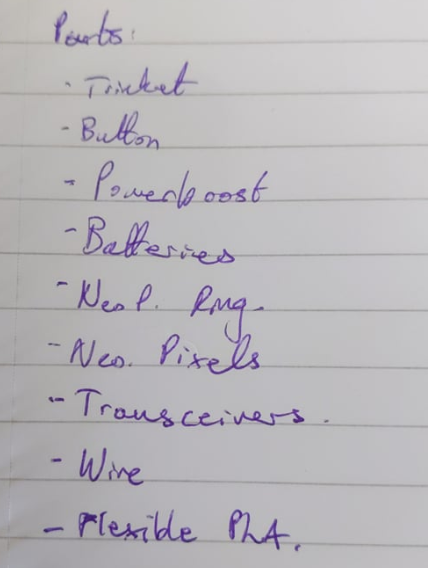 Parts:
- Trinket
- Button
- Powerboost
- Batteries
- Neo P. Ring.
- Neo. Pixels
- Transceivers.
- Wire
- Flexible PLA.